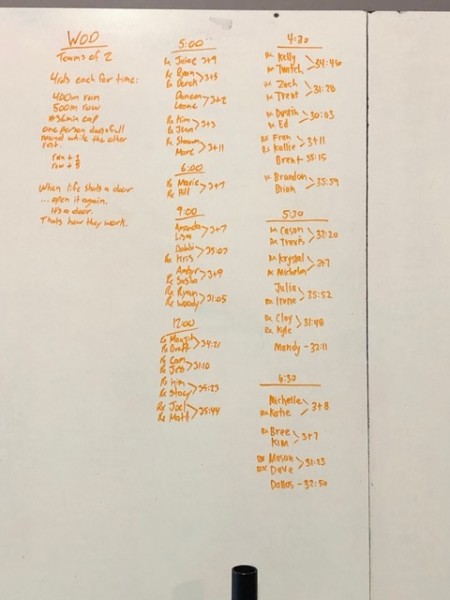 WOD
Teams of 2
4rds each for time:
400m run
500m row
*36min cap
one person does full
round while the other
rest.
run + 1
row + 5
When life shuts a door
...open it again.
It's a door.
Thats how they work.
5:00
Rx Jaime 3+9
Rx Ryan
Rx Derek >3+5
Duncan
Leone >3+2
Rx Kim
Rx Jean >3+3
Rx Shawn
Marc >3+11
6:00
Rx Marie
Rx Bill >3+7
9:00
Amanda
Lisa >3+7
Debbi
Rx Kris >35:03
Amber
Rx Sasha >3+9
Rx Ryan
Rx Woody >31:05
12:00
>34:21
Rx Cam
Rx Jes >31:10
Rx Kim
Rx Stacy >35:23
Rx Joel
Rx Matt >35:44
4:30
Rx Kelly
Rx Twitch >34:46
Rx Zach
Rx Trent >31:28
Rx Dustin
Rx Ed >30:03
Rx Fran
Rx Kallie >3+11
Brent 35:15
Rx Brandon
Brian >35:59
5:30
Rx Cason
Rx Travis >32:20
Rx Krystal
Rx Nicholas >3+7
Julia
Rx Irene >35:52
Rx Clay
Rx Kyle >31:48
Mandy - 32:11
6:30
Michelle
Rx Katie >3+8
Rx Bree
Kim >3+7
Rx Mason
Rx Dave >31:23
Dallas - 32:50